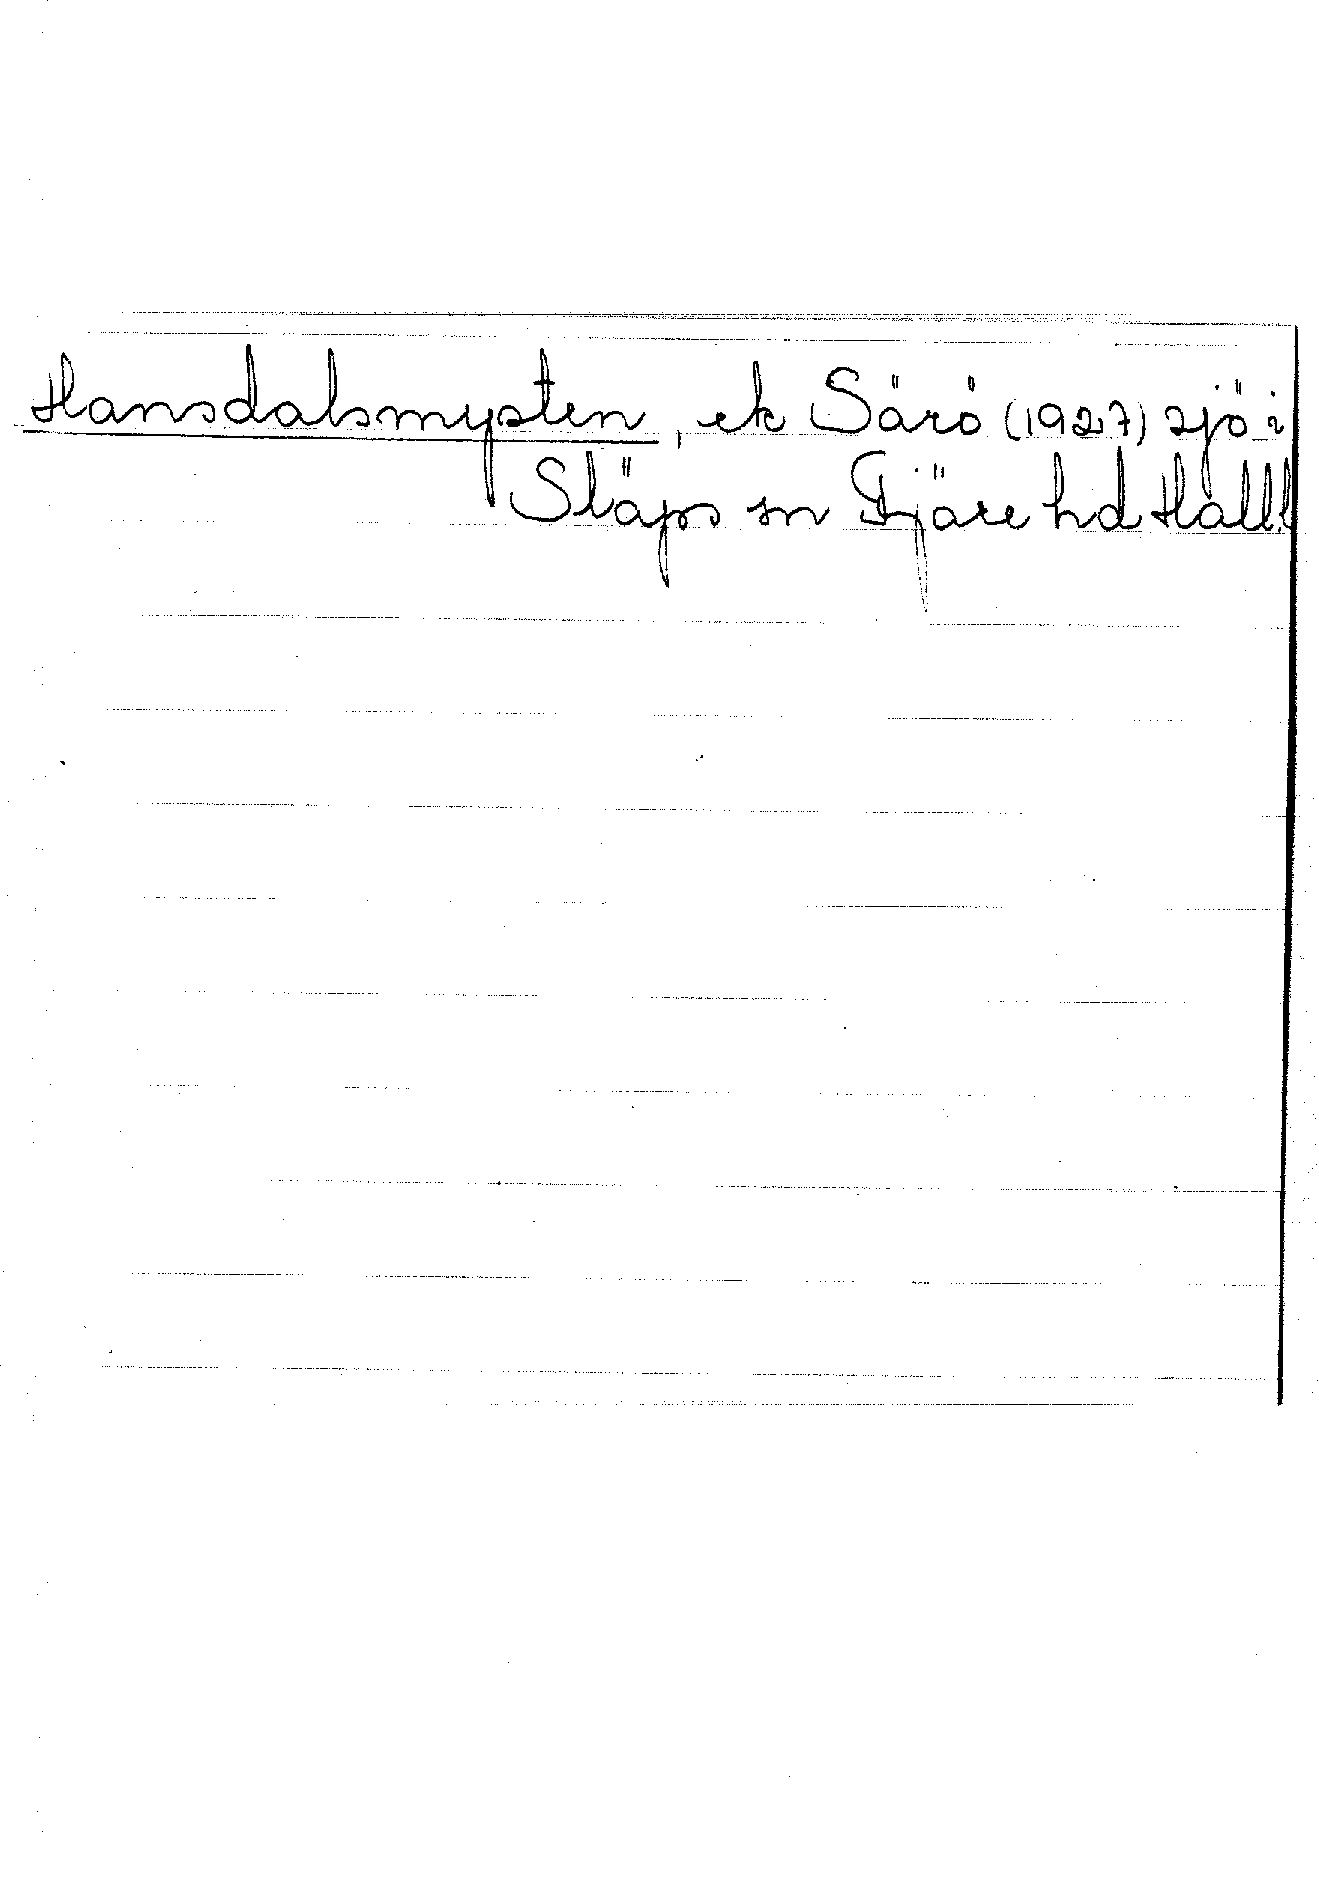 Hansdalsmysten, ek Särö (1927) sjö i
Släps sn Fjäre hd Hall.